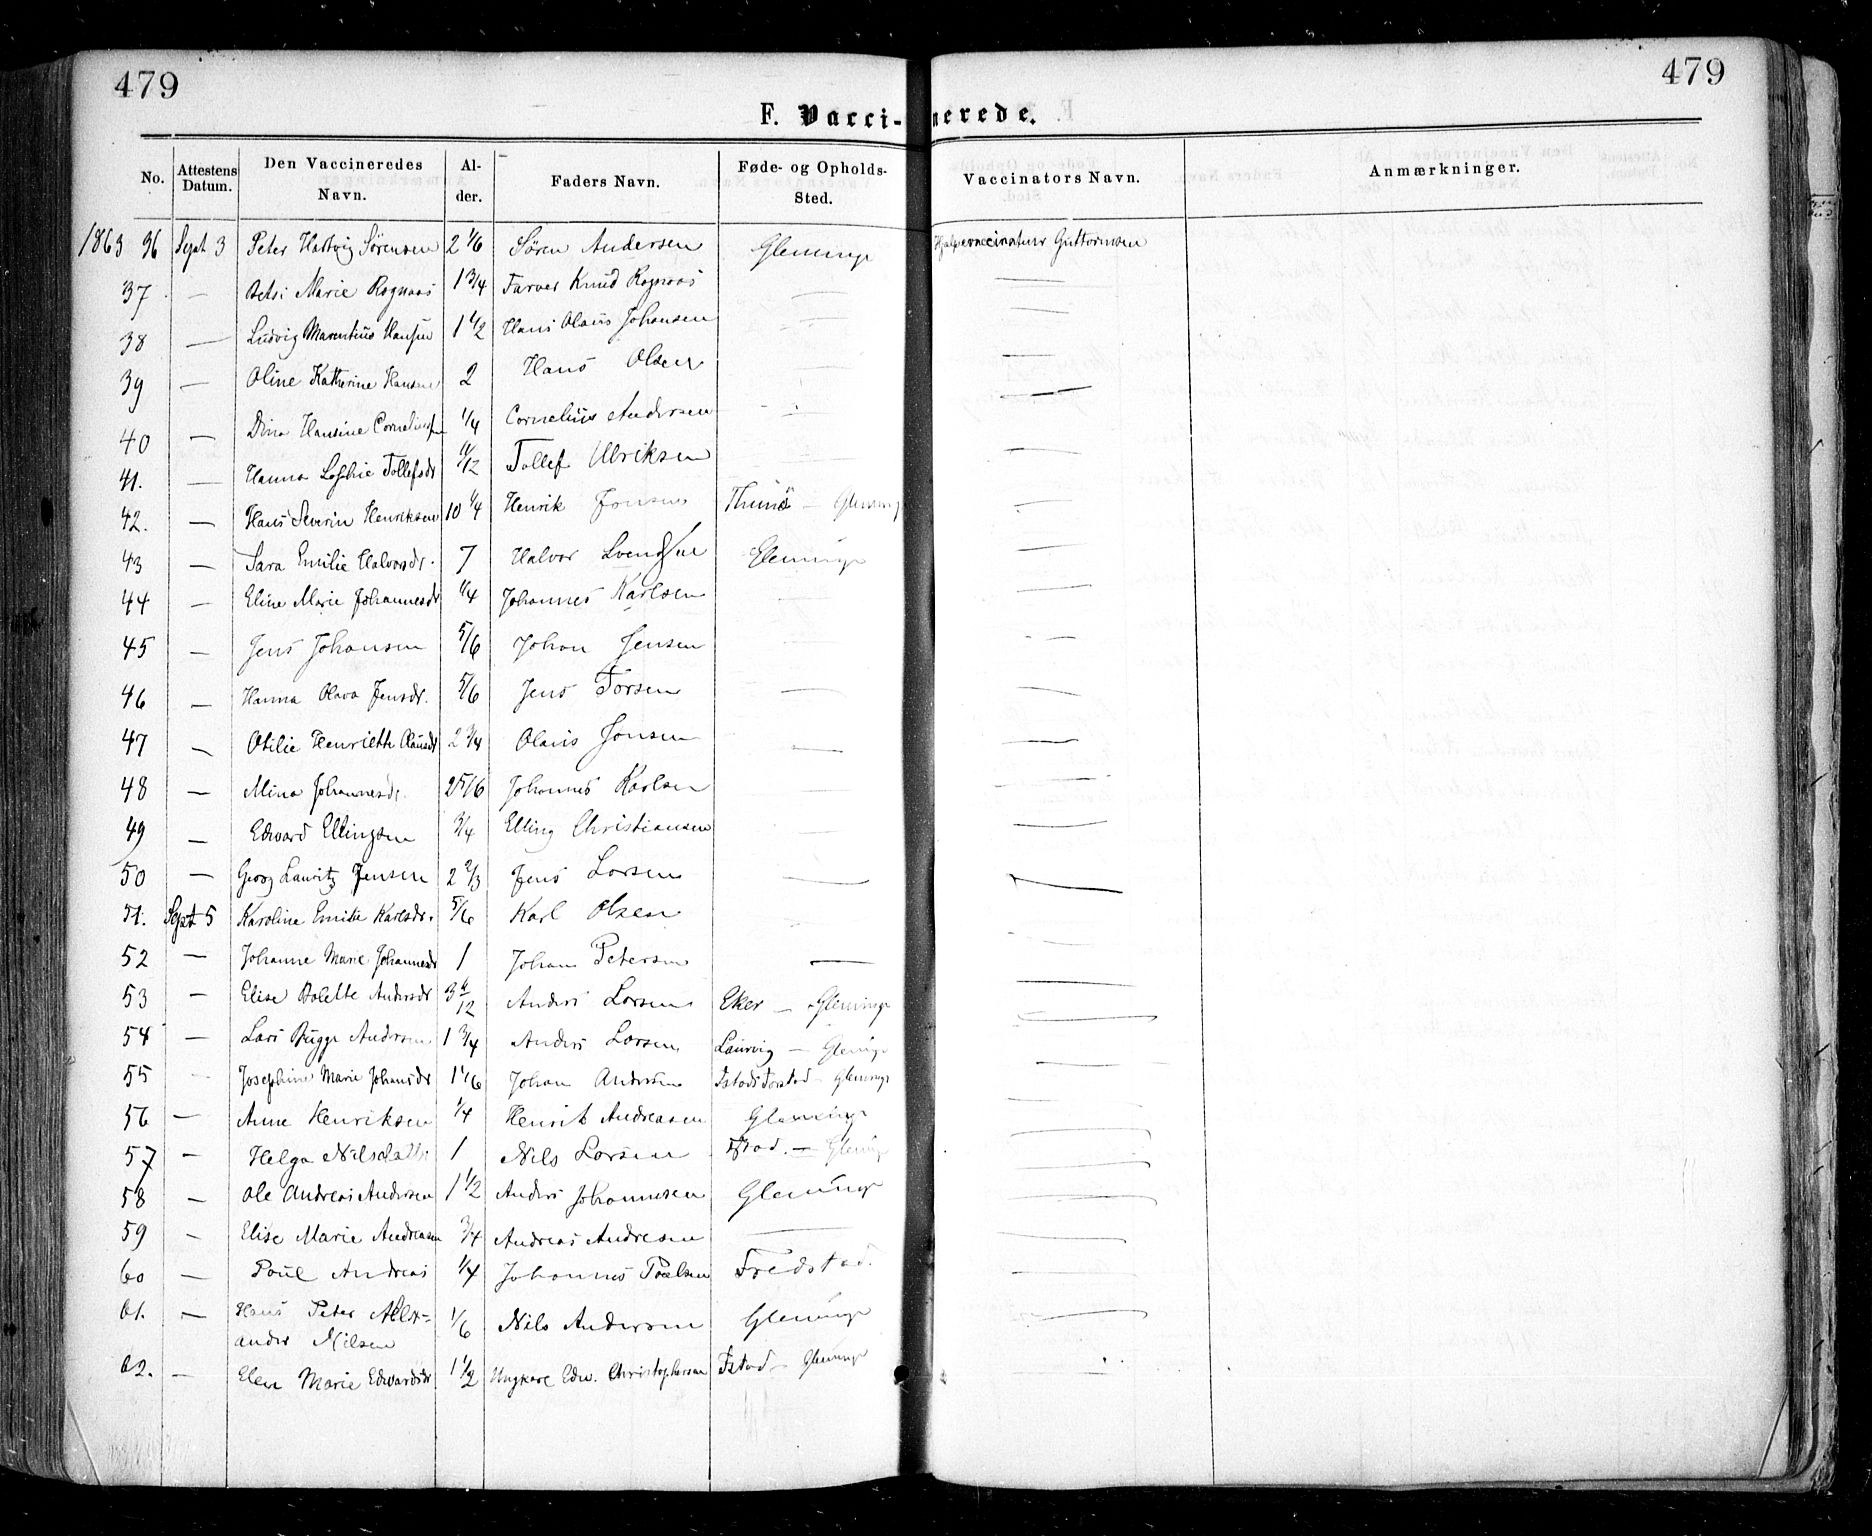 479 479
F. Vaccinerede.
No. Attestens Datum. Den Vaccineredes Navn. Alder. Faders Navn. Føde- og Opholds-Sted. Vaccinators Navn. Anmærkninger.
1863 36 Sept 3 Peter Hartvig Sørensen 2 1/6 Søren Andersen Glemminge Hjelpevaccinatør Guttormsen
37 — Betsi Marie Rognaas 1 3/4 Farver Knud Rognaas — —
38 — Ludvig Marentius Hansen 1 1/2 Hans Olaus Johansen — —
39 — Oline Katherine Hansen 2 Hans Olsen — —
40 — Dina Hansine Corneliusen 1/4 Cornelius Andersen — —
41. — Hanna Sophie Tollefsdr 11/12 Tollef Ulriksen — —
42. — Hans Severin Henriksen 10 1/4 Henrik Jonsen Thunø — Glemminge —
43 — Sara Emilie Halvorsdr. 7 Halvor Svendsen Glemminge —
44 — Eline Marie Johannesdr 1/4 Johannes Karlsen — —
45 — Jens Johansen 5/6 Johan Jensen — —
46 — Hanna Olava Jensdr. 5/6 Jens Torsen — —
47 — Otilie Henriette Olausdr 2 3/4 Olaus Jonsen — —
48 — Mina Johannesdr. 2 5/6 Johannes Karlsen — —
49 — Edvard Ellingsen 3/4 Elling Christiansen — —
50 — Georg Lauritz Jensen 2 2/3 Jens Larsen — —
51. Sept 5 Karoline Emilie Karlsdr. 5/6 Karl Olsen — —
52 — Johanne Marie Johannesdr 1 Johan Petersen — —
53 — Elise Bolette Andersdr 3 /12 Anders Larsen Eker — Glemminge —
54 — Lars Bugge Andersen 1 3/4 Anders Larsen Laurvig — Glemminge —
55 — Josephine Marie Johansdr 1 1/6 Johan Andersen Glemminge —
56 — Anne Henriksen 1/4 Henrik Andreasen Glemminge —
57 — Helga Nilsdatter 1 Nils Larsen Fstad. — Glemminge —
58 — Ole Andreas Andersen 1 1/2 Anders Johannesen Glemminge —
59 — Elise Marie Andreasen 3/4 Andreas Andresen — —
60 — Poul Andreas 1/4 Johannes Paalsen Fredstad. —
61. — Hans Peter Alex-
ander Nilsen 1/6 Nils Andersen Glemminge —
62. — Elen Marie Edvardsdr 1 1/2 Ungkarl Edv. Christophersen Fstad — Glemminge —